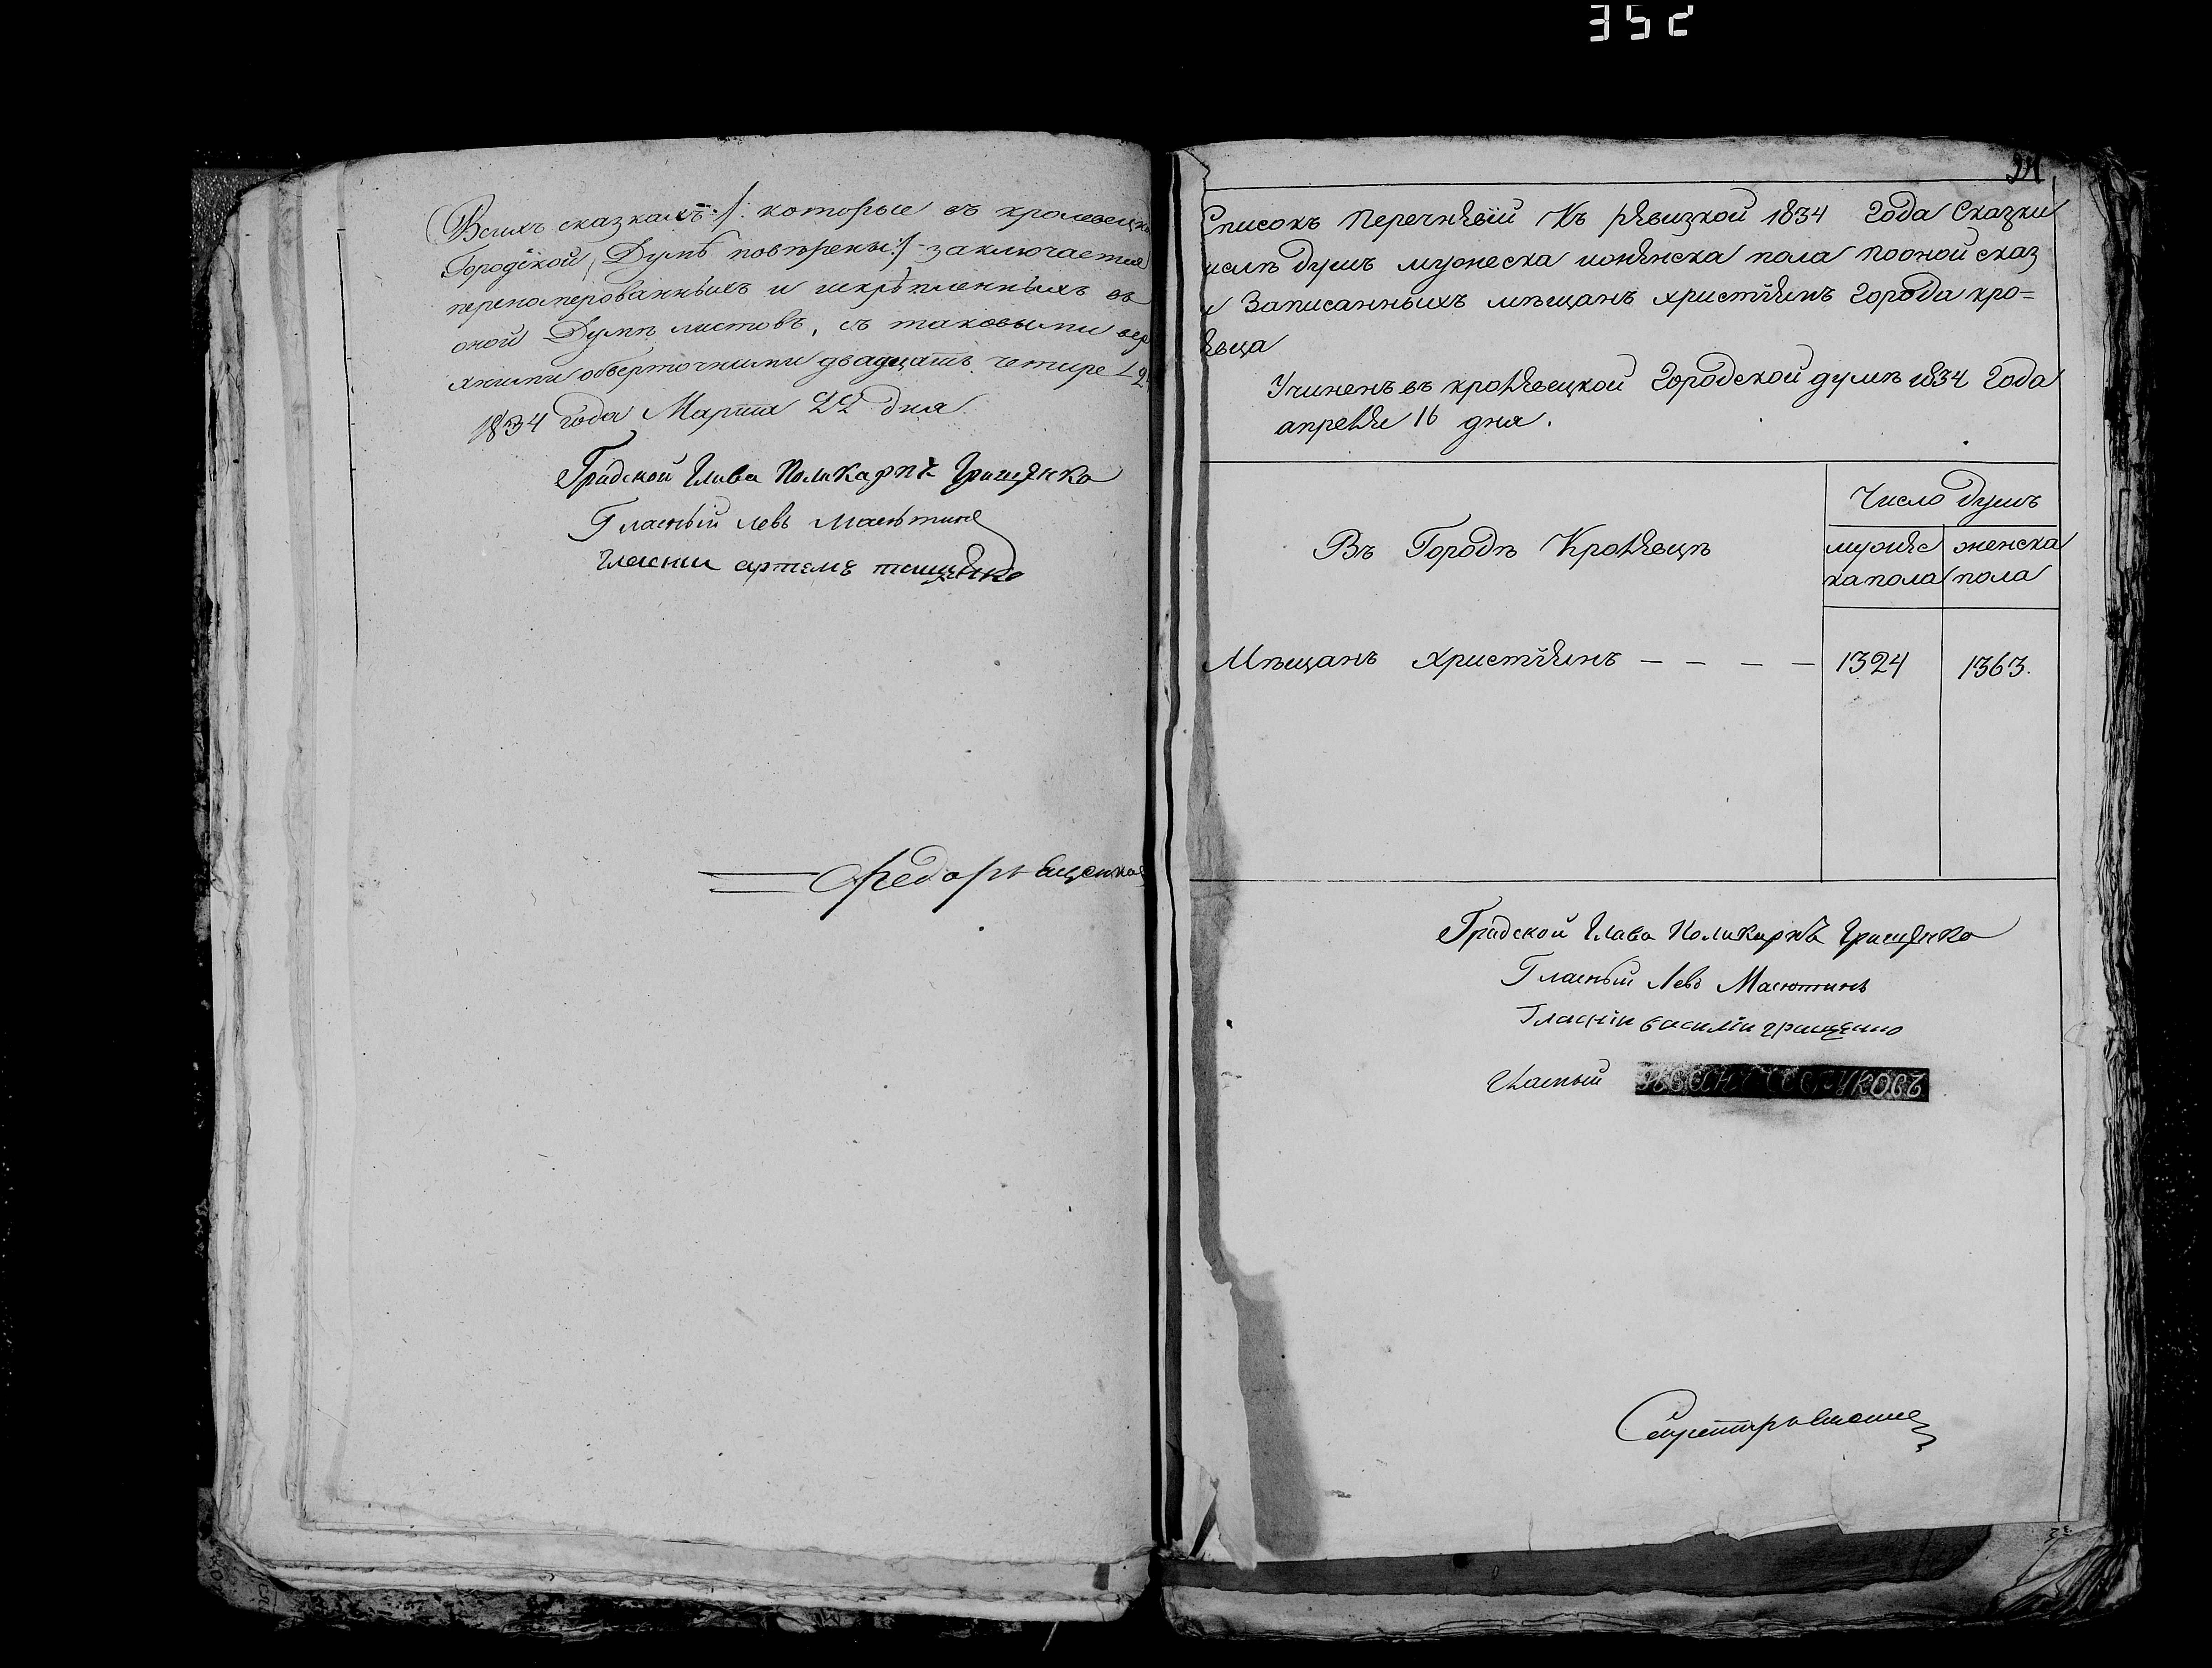 352
Всихъ сказкахъ /: которые въ кролевецко
Городской Думѣ повѣрены :/ заключается
перенамерованныхъ и шкрѣпленныхъ въ
оной Думѣ листовъ, съ таковыми вер
хними оберточними двадцать четире
1834 года Марта 22 дня.
Градской Глава Поликарпъ Грищенко
Гласный Левъ Масютинъ
Гласни артемъ тащенко
Федоръ Ященко
Списокъ перечневій Къ ревизкой 1834 года Сказки
числѣ душъ мужеска иженска пола пооной сказ
и Записанныхъ мѣщанъ христіянъ Города кро=
левца
Учиненъ въ кролевецкой Городской думѣ 1834 Года
апреля 16 дня.
Въ Городѣ Кролевцѣ
Число душъ
мужес женска
ка пола пола
Мѣщанъ христіянъ — — — — 1324 1363.
Градской Глава Поликарпъ Грищенко
Гласный Левъ Масютинъ
Гласній василій грищенко
Гласный
32